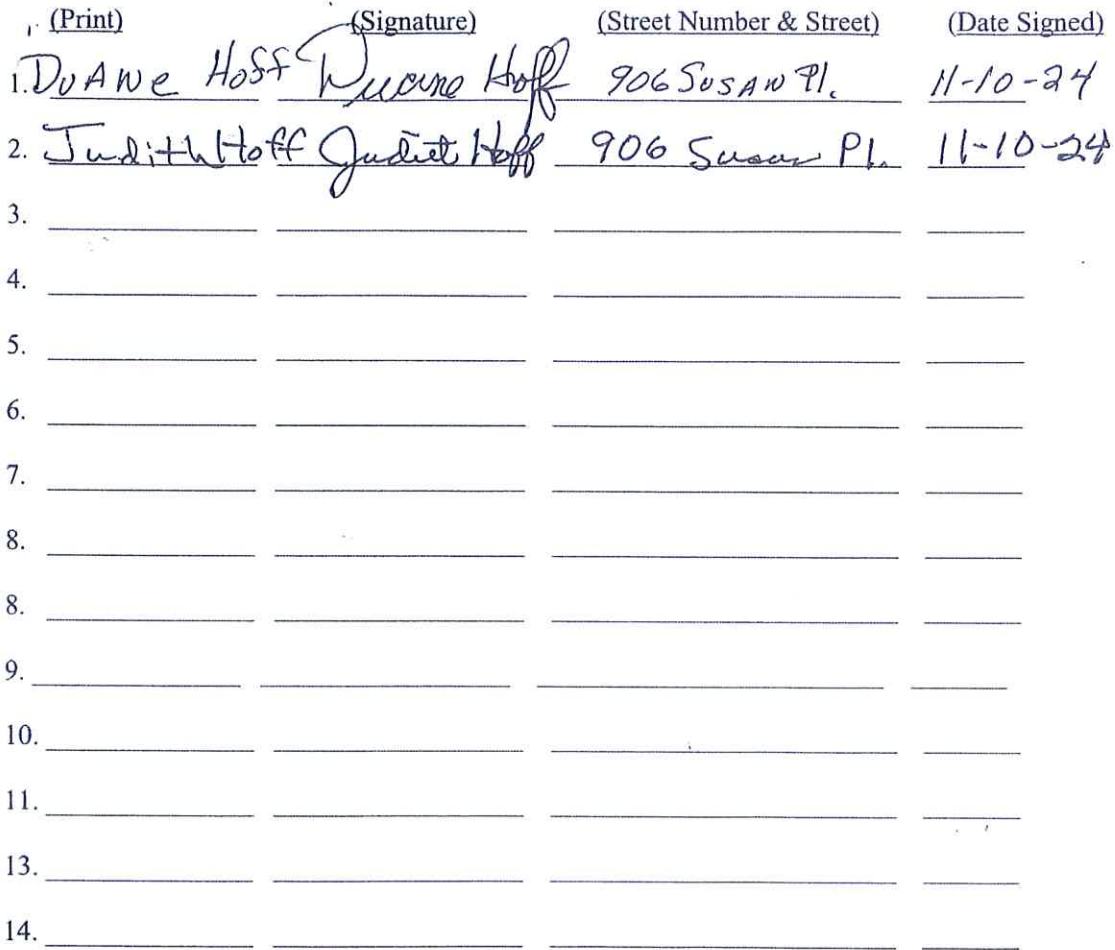 (Print) (Signature) (Street Number & Street) (Date Signed)
1. DuANe Hoff Duane Hoff 906 SUSAN Pl. 11-10-24
2. Judith Hoff Judith Hoff 906 Susan Pl. 11-10-24
3.
4.
5.
6.
7.
8.
8.
9.
10.
11.
13.
14.